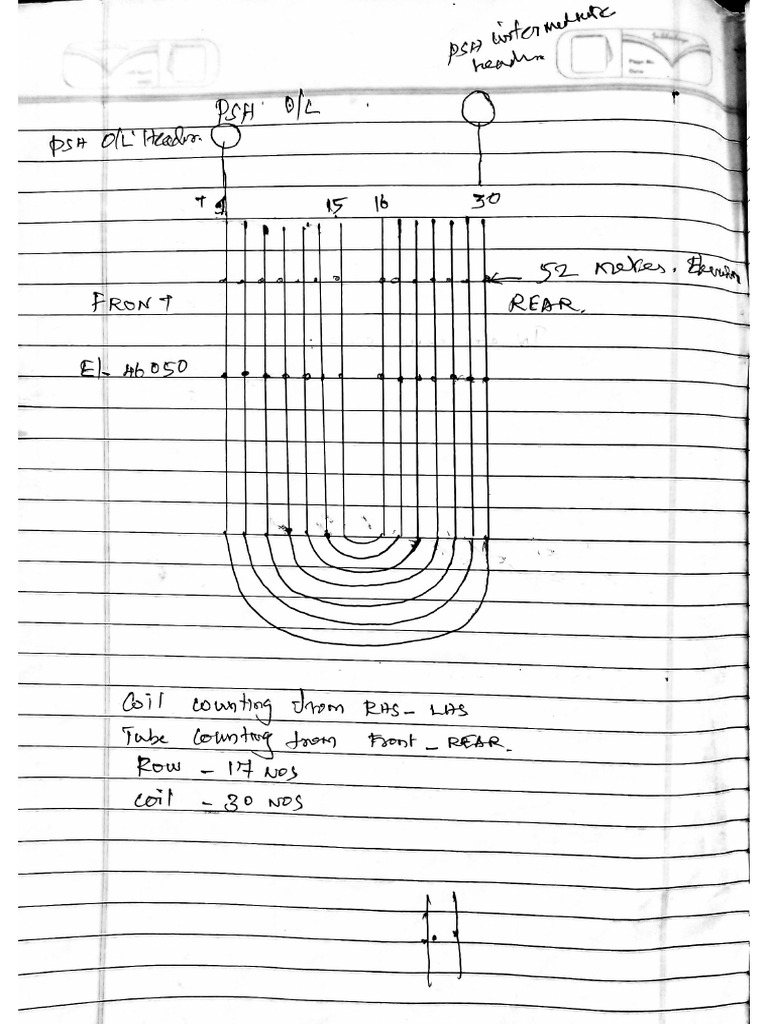 PSH intermediate
header
PSH O/L
PSH O/L Header
1 15 16 30
52 metres.
FRONT REAR.
El- 46050
Coil counting from RHS- LHS
Tube counting from Front - REAR.
Row - 17 NOS
coil - 30 NOS